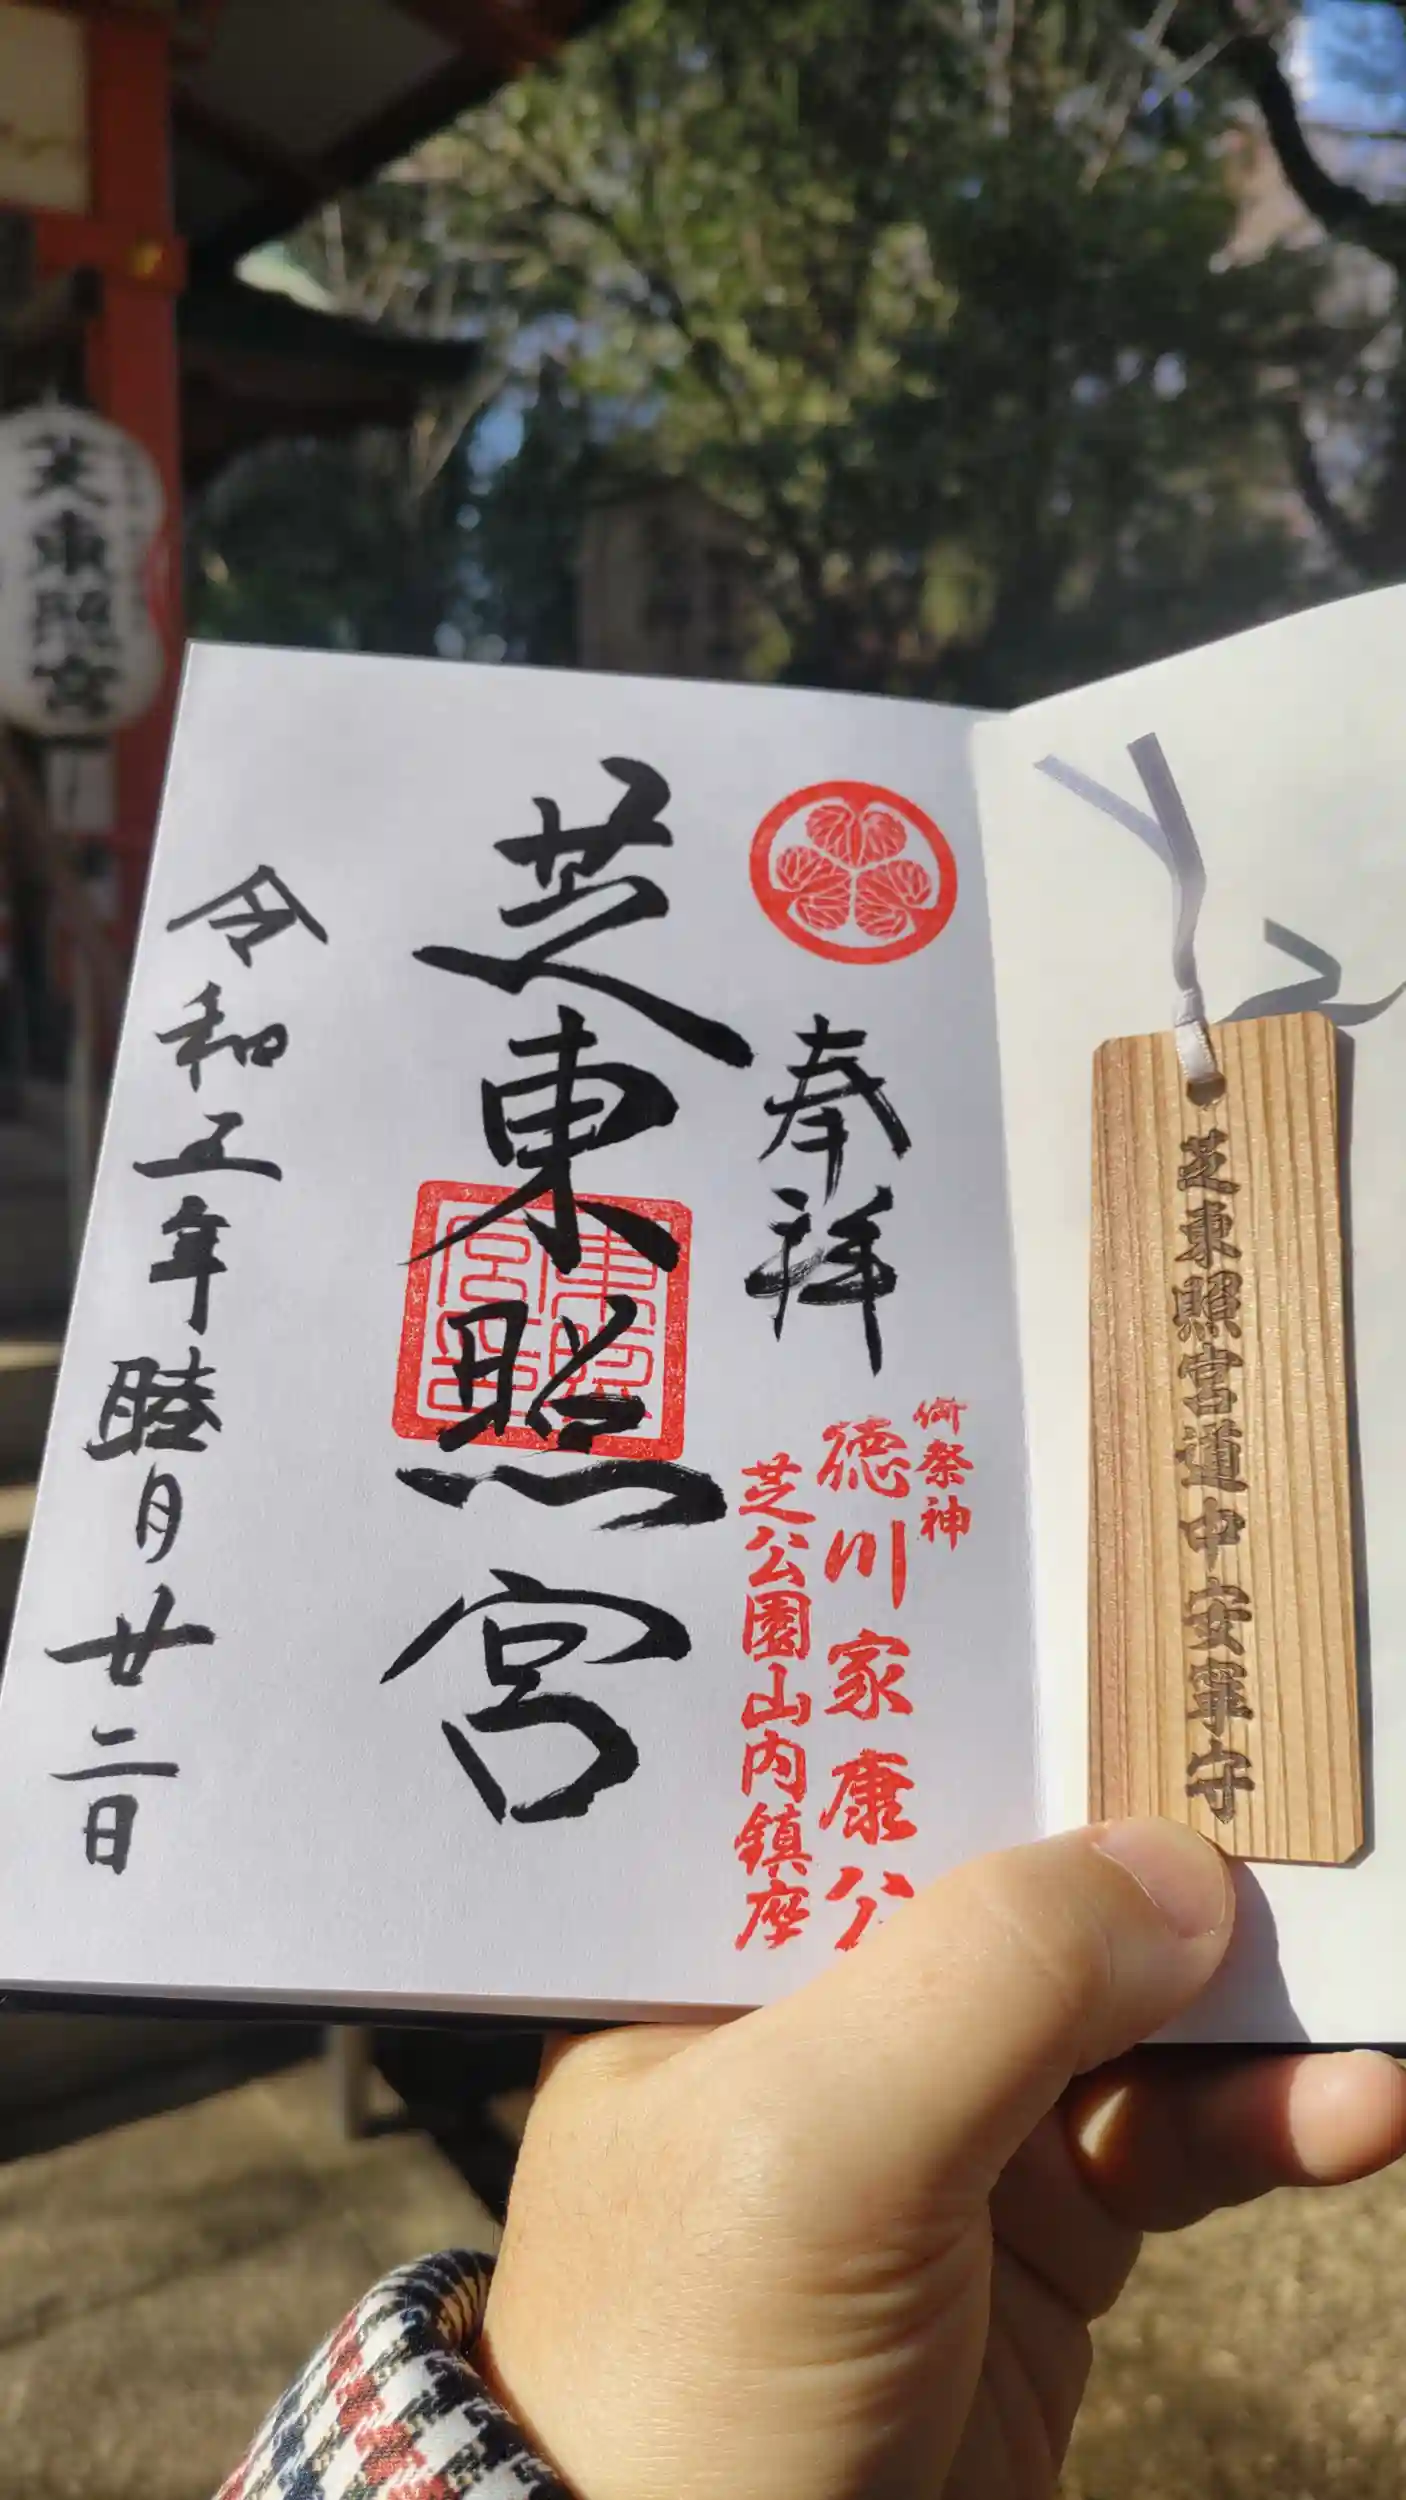 芝東照宮
奉拝
御祭神
徳川家康公
芝公園山内鎮座
芝東照宮
令和五年睦月廿二日
芝東照宮道中安寧守